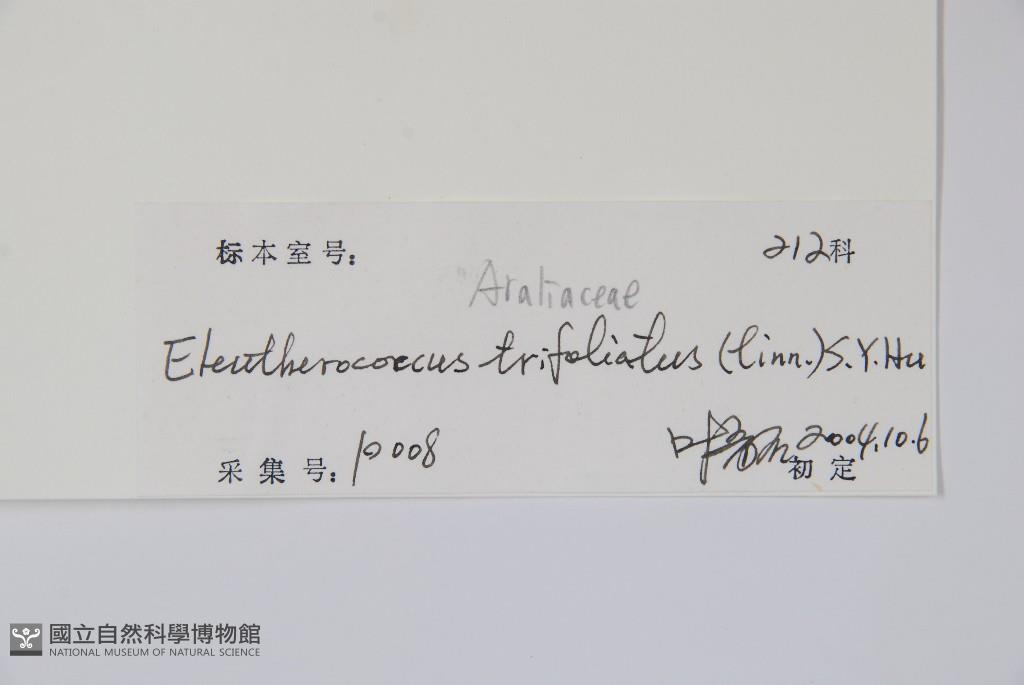 标本室号: 212科
Araliaceae
Eleutherococcus trifoliatus (Linn.) S.Y. Hu
采集号: 10008
叶 2004.10.6
初定
國立自然科學博物館
NATIONAL MUSEUM OF NATURAL SCIENCE